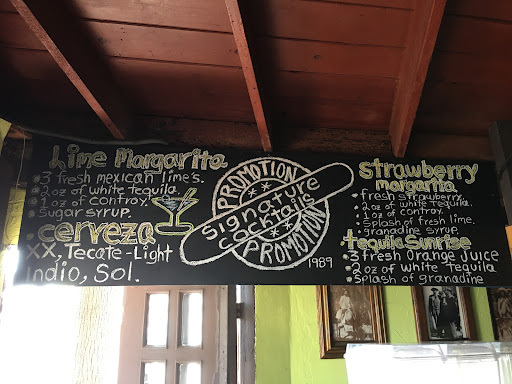 Lime Margarita
3 fresh mexican lime's.
2 oz of white tequila.
1 oz of controy.
Sugar syrup.
cerveza
XX, Tecate-Light
Indio, Sol.
PROMOTION
signature
cocktails
PROMOTION
1989
Strawberry
margarita
fresh strawberry.
2 oz of white tequila.
1 oz of controy.
splash of fresh lime.
granadine syrup.
tequila Sunrise
3 fresh Orange Juice
2 oz of white tequila
Splash of granadine